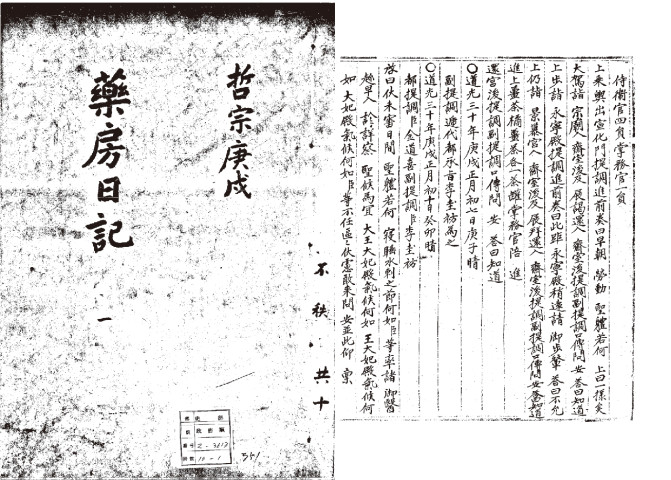 哲宗庚戌
藥房日記
一
不秩共十
351
侍衛官四員掌務官一員
上乘輿出宣化門提調進前奏曰早朝勞動 聖體若何 上曰一樣矣
大駕詣 宗廟入齋室後及展謁還入齋室後提調副提調口傳問 安 答曰知道
上步詣 永寧殿提調進前奏曰此距 永寧殿稍遠請御步輦 答曰不允
上仍詣 景慕宮入齋室後及展拜還入齋室後提調副提調口傳問 安答知道
進上薑茶橘薑茶各一茶罐掌務官陪 進
還宮後提調副提調口傳問 安 答曰知道
○道光三十年庚戌正月初七日庚子晴
副提調遞代都承旨李圭祊爲之
○道光三十年庚戌正月初十日癸卯晴
都提調臣金道喜副提調臣李圭祊
啓曰伏未審日間 聖體若何 寢睡水剌之節何如臣等率諸御醫
趁早入 診詳察 聖候爲宜 大王大妃殿氣候何如 王大妃殿氣候何
如 大妃殿氣候何如臣等不任區區伏慮敢來問 安並此仰 稟